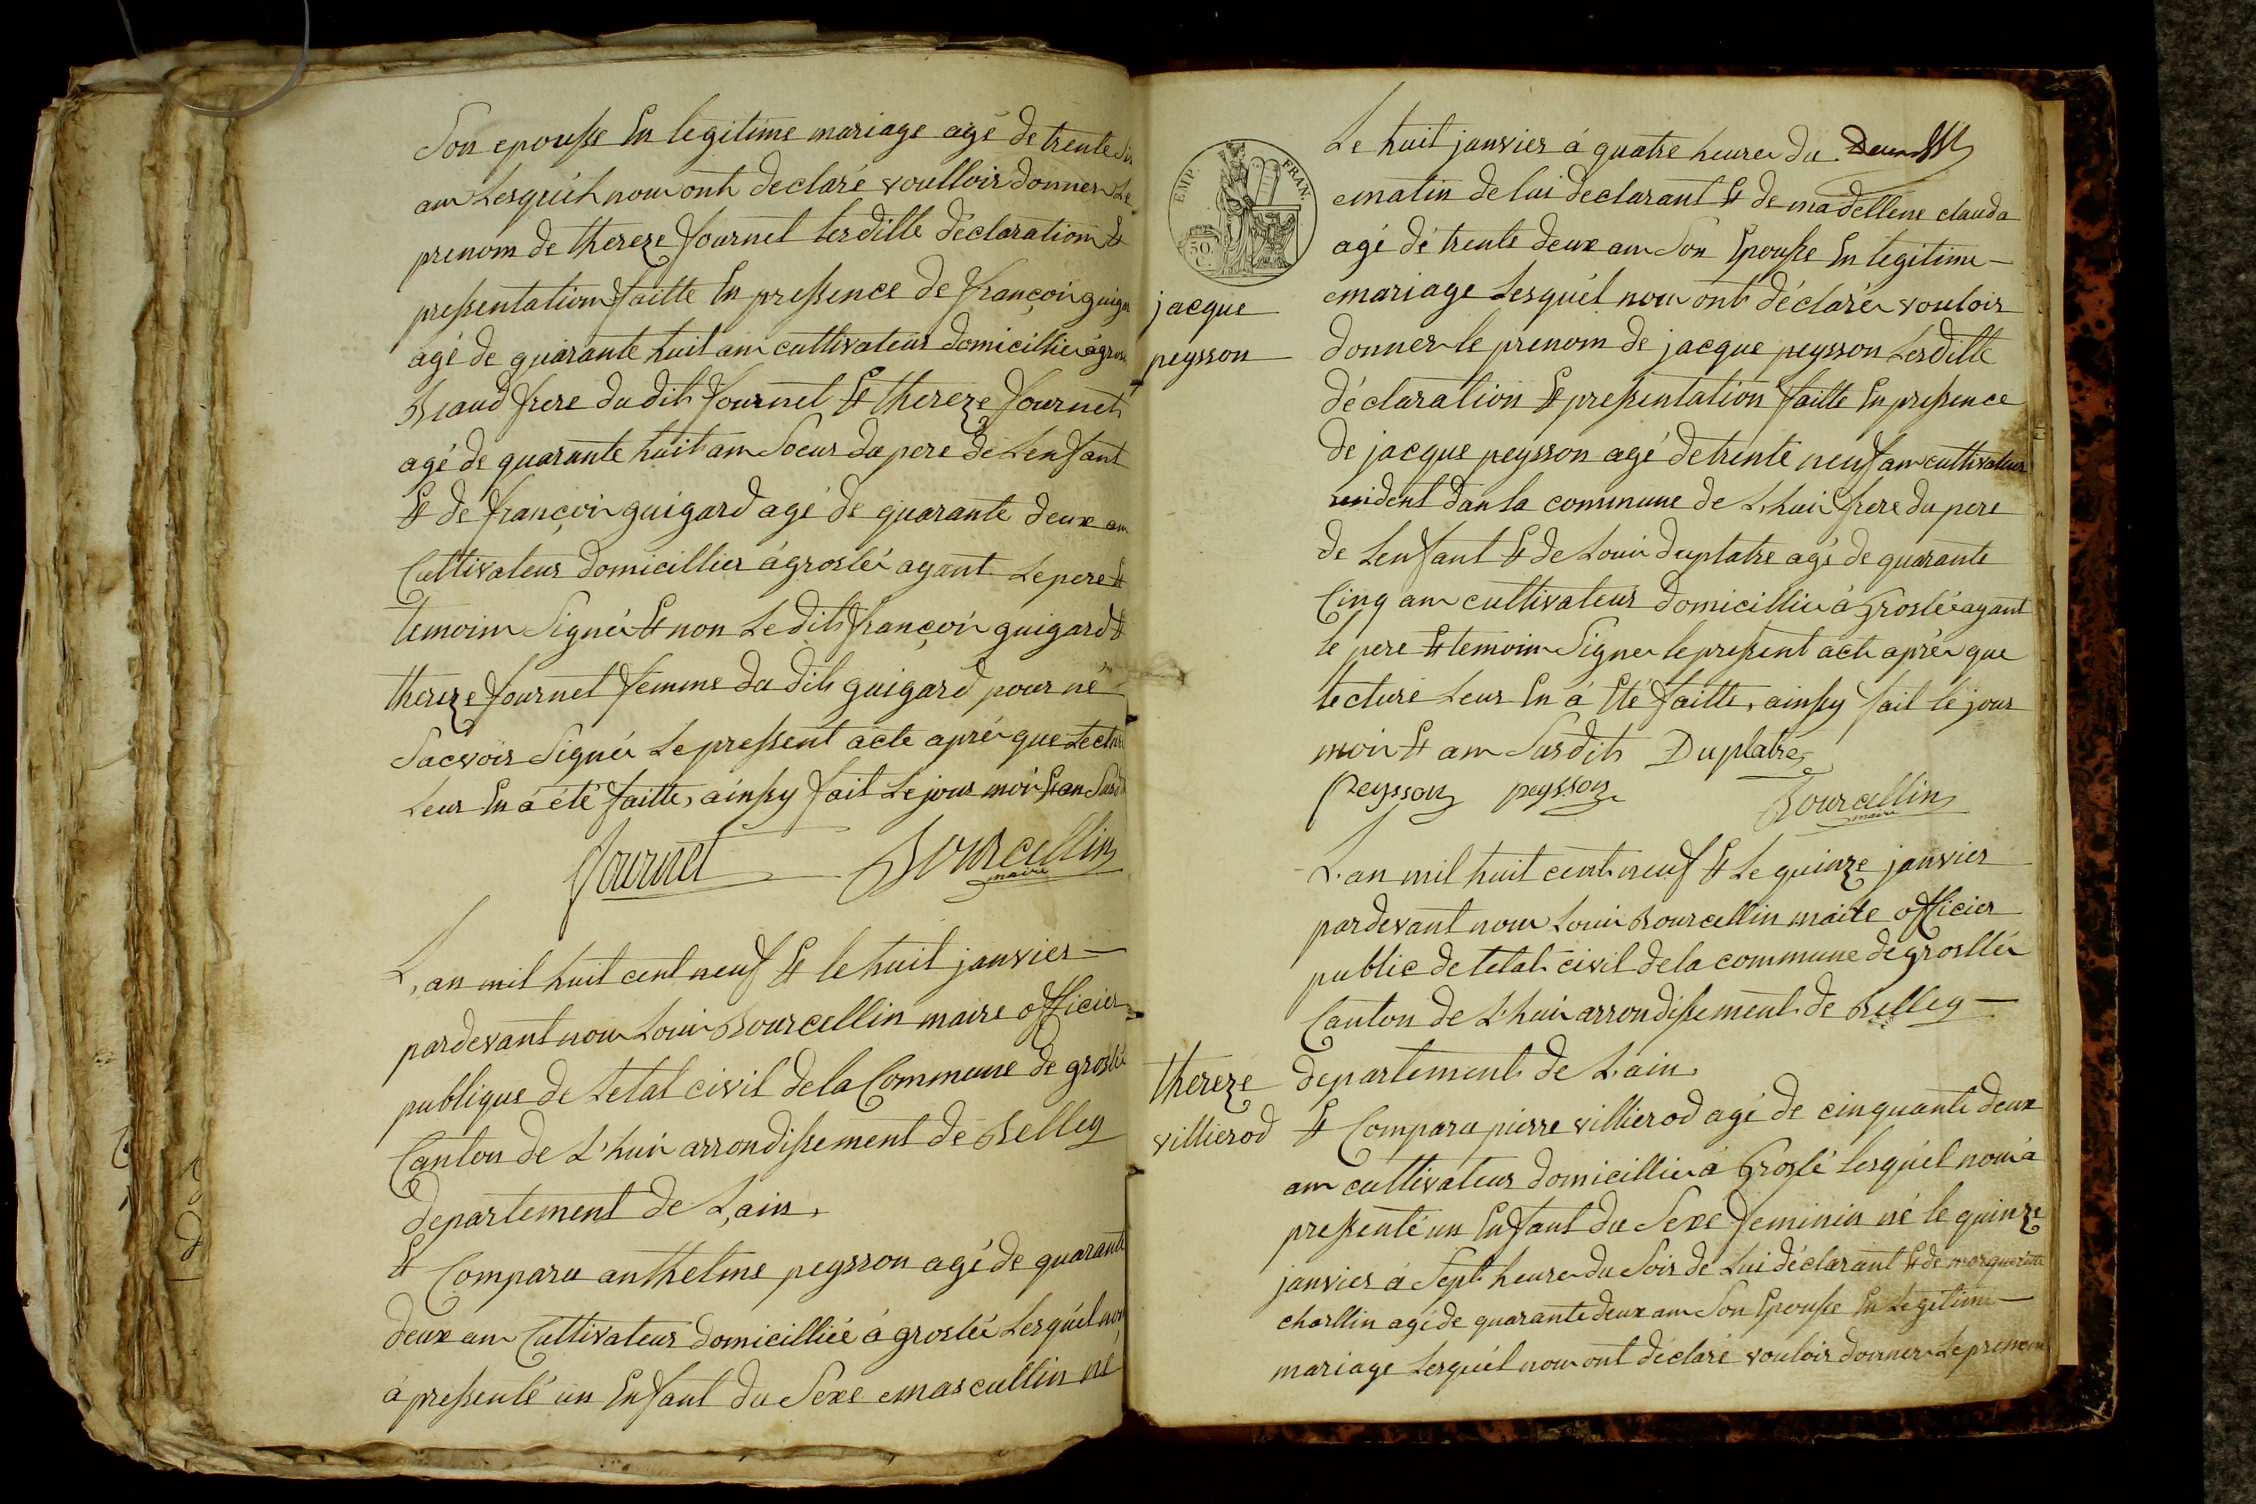 Son epousse En legitime mariage agé de trente six
ans Lesquéls nous ont declaré voulloir donner Le
prenom de thereze fournet Lesditte déclaration Et
pressentation faitte En pressence de françois guigar
agé de quarante huit ans cultivateur domicillié à gros
Beaud frere du dit fournet Et thereze fournet
agé de quarante huit ans Soeur du pere de Lenfant
Et de françois guigard agé de quarante deux ans
Cultivateur domicillier á groslée ayant Le pere Et
temoins Signés Et non Le dit françois guigard Et
thereze fournet femme du dit guigard pour ne
Sacvoir Signés Le pressent acte aprés que Lectur
Leur En á été faitte, ainssy fait Le jour mois Et an Susdit
fournet Bourcellin
maire
L'an mil huit cent neuf Et le huit janvier
pardevant nous Louis Bourcellin maire officier
publique de Letat civil de la Commune de groslée
Canton de L'huis arrondissement de Belley
departement de L'ain.
Et Comparu anthelme peysson agé de quarante
deux ans Cultivateur domicilliée á groslée Lesquél nous
á pressenté un Enfant du Sexe mascullin né
EMP. FRAN.
50 C.
Le huit janvier á quatre heures du
matin de lui declarant Et de madellene clauda
agé de trente deux ans Son Epousse En legitime
mariage Lesquél nous ont déclarés vouloir
jacque
donner le prenom de jacque peysson Lesditte
peysson
déclaration Et pressentation faitte En pressence
de jacque peysson agé de trente neuf ans cultivateur
resident dans la commune de L'huis frere du pere
de Lenfant Et de Louis duplatre agé de quarante
Cinq ans cultivateur domicillié á Groslée ayant
le pere Et temoins Signer le pressent acte aprés que
lecture Leur En á Eté faitte, ainssy fait le jour
mois Et an Susdit Duplatre
Peysson peysson Bourcellin
maire
L'an mil huit cent neuf Et Le quinze janvier
pardevant nous Louis Bourcellin maire officier
public de letat civil de la commune de grosllée
Canton de L'huis arrondissement de Belley
thereze departement de L'ain.
villierod Et Comparu pierre villierod agé de cinquante deux
ans cultivateur domicillié á Groslé lesquél nous á
pressenté un Enfant du Sexe feminin né le quinze
janvier á Sept heures du Soir de Lui déclarant Et de margueritte
charllin agé de quarante deux ans Son Epousse En Legitime
mariage Lesquél nous ont déclaré vouloir donner Le prenom